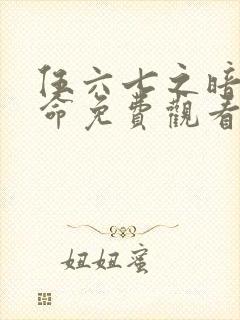 伍六七之暗
命免費觀看
妞妞蜜